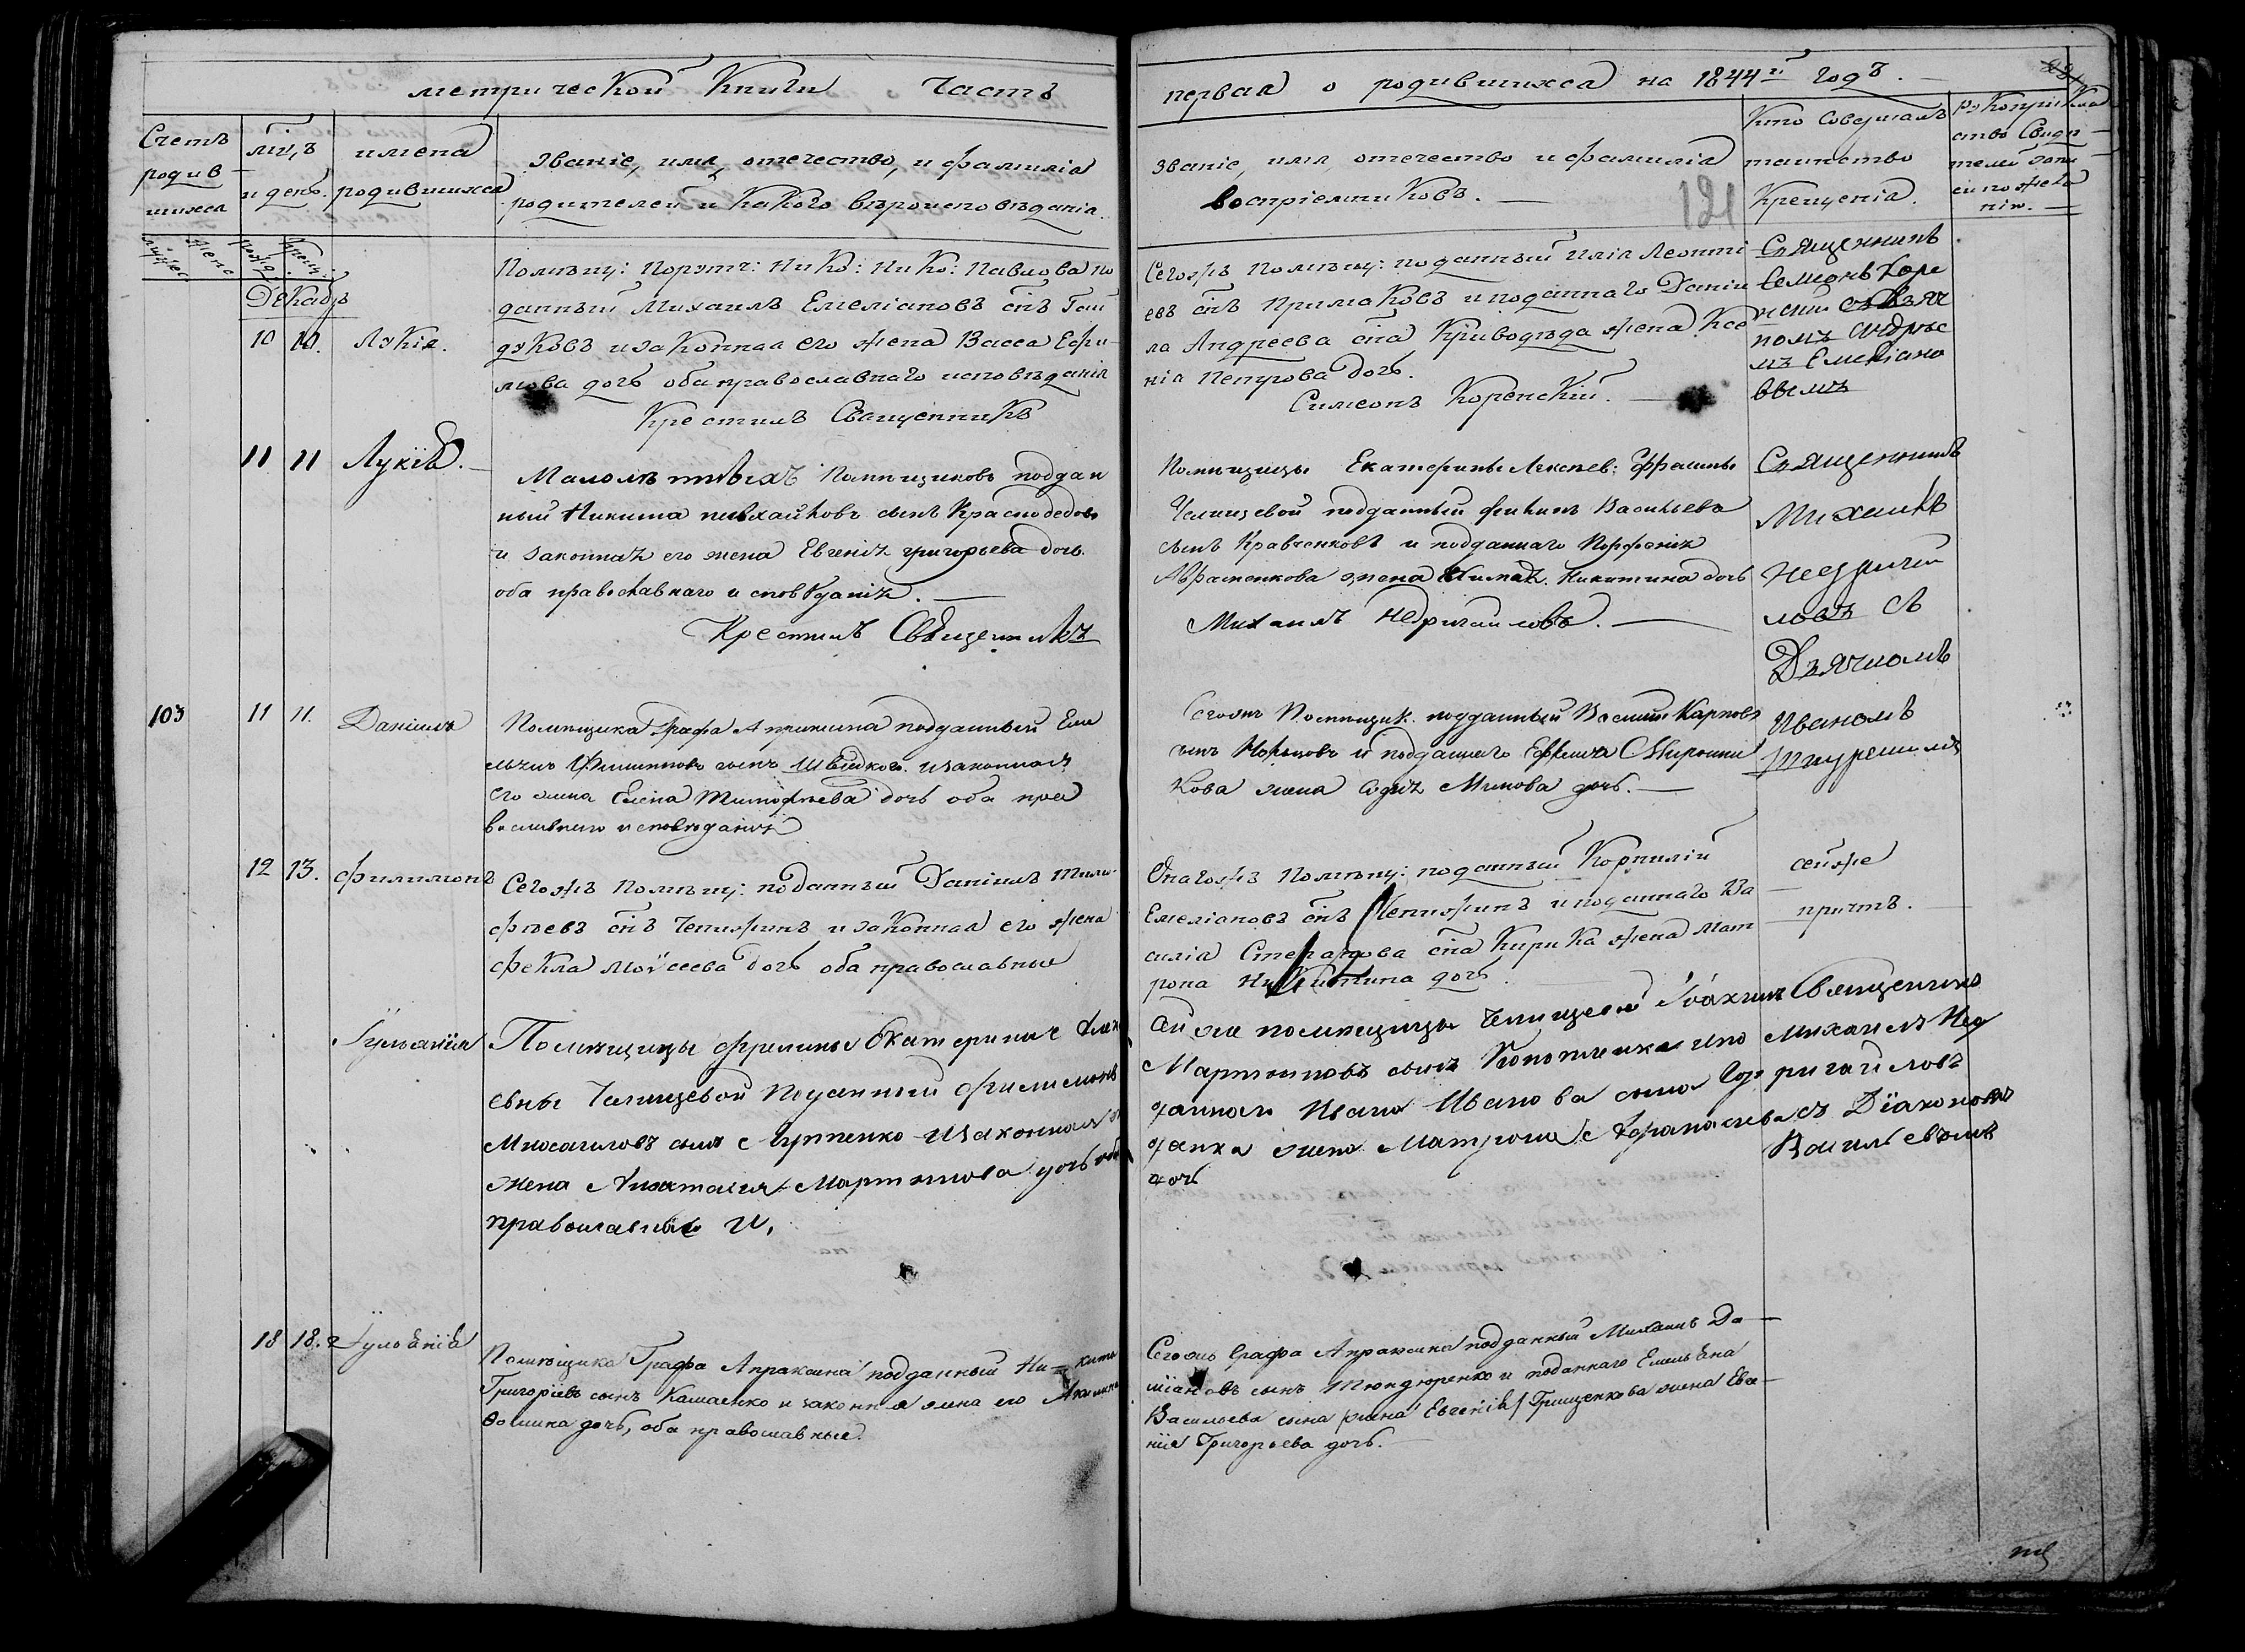 метрической Книги Часть
Счетъ
родив
шихся
м͞ц,ъ
и день.
имена
родившихся
Званіе, имя, отечество, и фамилія
родителей и Какого вѣроисповѣданія.
Декабрь
10 10. Лукія.
Помѣщ: Поруч: Нико: Нико: Павлова по
данный Михаилъ Емеліановъ с͞нъ Гай
дуковъ и законная его жена Васса Ефи
мова дочь оба православнаго исповѣданія
Крестилъ Священникъ
11 11 Лукія.
Малолѣтныхъ Помѣщиковъ поддан
ный Никита сынъ Краснодедовъ
и законная его жена Евгенія григорьева дочь.
оба православнаго исповѣданія.
Крестилъ Священникъ
103 11 11. Даніилъ
Помѣщика Графа Апраксина подданный Еме
льянъ Филипповъ сынъ Шведкого. и законная
его жена Елена Тимофѣева дочь оба пра
вославнаго исповѣданія
12 13. Филимонъ
Сегожъ Помѣщ: поданный Даніилъ Тимо
фѣевъ с͞нъ Чепижинъ и законная его жена
Фекла Моѵсеева дочь оба православные
Іуліанія
Помѣщицы Фрелины Екатерины Алек
евны Челищевой Поданный Филимонъ
сынъ и законная
жена Анастасия Мартинова дочь оба
православные И.
18 18. Іуліанія
Помѣщика Графа Апраксина подданный Ни-кита
Григоріевъ сынъ Кашаенко и законня жена его Акилина
Фомина дочь, оба православные.
первая о родившихся на 1844й Годъ.
Званіе, имя, отечество и фамилія
воспріемниковъ.
121
Кто Совершалъ
таинство
Крещенія.
Рукоприклад
ство Свидѣ
телей запи
си по жела
нію.
Сегожъ Помѣщ: поданный Илія Леонті
евъ с͞нъ Примаковъ и поданнаго Даніи
ла Андреева с͞на Криводѣда жена Ксе
нія Петрова дочь.
Симеонъ Коренскій.
Священникъ
Семіонъ Коре
нский съ Дяч
комъ Андрѣе
мъ Емеліано
вымъ
Помѣщицы Екатерины Алексѣев: Фрелины
Челищевой подданный Филипъ Васильевъ
сынъ Кравченковъ и подданнаго Порфенія
Авраменкова жена Никитина дочь
Михаилъ Недригайловъ.
Священникъ
Михаилъ
Недригай
ловъ съ
Дьячкомъ
Сегожъ Помѣщик. подданный Василій Карповъ
сынъ и подданнаго Ефима
кова жена Минова дочь.
Иваномъ
Онагожъ Помѣщ: поданный Корнилій
Емеліановъ с͞нъ Чепижинъ и поданнаго Ва
силія Степанова с͞на Кирика жена Мат
рона Никитина дочь.
сейже
причтъ.
ей же помещицы Челищевой Іоахимъ
Мартиновъ сынъ и по
даннаго Ивана Иванова сына
жена Матрона Афанасьева
дочь
Священикъ
Михаилъ Нед
ригайловъ
съ Діакономъ
Васильевымъ
Сегожъ Графа Апраксина подданный Михаилъ Да
міановъ сынъ Тюндюренко и поданнаго Емельяна
Васильева сына Грищенкова жена Евге
нія Григорьева дочь.